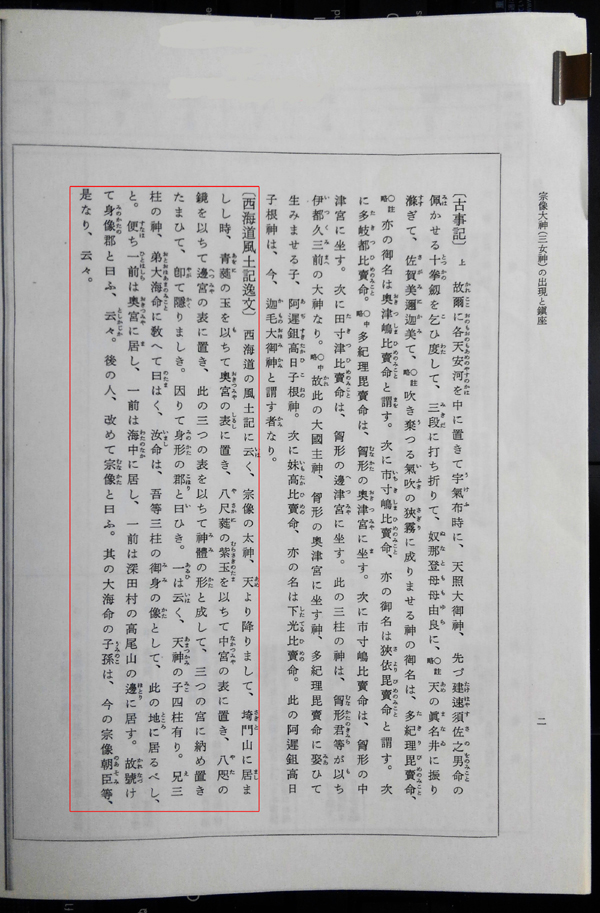 宗像大神(三女神)の出現と鎮座
二
〔古事記〕上 故爾に各天安河を中に置きて宇氣布時に、天照大御神、先づ建速須佐之男命の
佩かせる十拳劔を乞ひ度して、三段に打ち折りて、奴那登母母由良に、○註略 天の眞名井に振り
滌ぎて、佐賀美邇迦美て、○註略 吹き棄つる氣吹の狹霧に成りませる神の御名は、多紀理毘賣命、
○註略 亦の御名は奧津嶋比賣命と謂す。次に市寸嶋比賣命、亦の御名は狹依毘賣命と謂す。次
に多岐都比賣命。○中略 多紀理毘賣命は、胷形の奧津宮に坐す。次に市寸嶋比賣命は、胷形の中
津宮に坐す。次に田寸津比賣命は、胷形の邊津宮に坐す。此の三柱の神は、胷形君等が以ち
伊都久三前の大神なり。○中略 故此の大國主神、胷形の奧津宮に坐す神、多紀理毘賣命に娶ひて
生みませる子、阿遲鉏高日子根神。次に妹高比賣命、亦の名は下光比賣命。此の阿遲鉏高日
子根神は、今、迦毛大御神と謂す者なり。
〔西海道風土記逸文〕 西海道の風土記に云く、宗像の太神、天より降りまして、埼門山に居ま
しし時、青蕤の玉を以ちて奧宮の表に置き、八尺蕤の紫玉を以ちて中宮の表に置き、八咫の
鏡を以ちて邊宮の表に置き、此の三つの表を以ちて神體の形と成して、三つの宮に納め置き
たまひて、卽て隱りましき。因りて身形の郡と曰ひき。一は云く、天神の子四柱有り。兄三
柱の神、弟大海命に敎へて曰はく、汝命は、吾等三柱の御身の像として、此の地に居るべし、
と。便ち一前は奧宮に居し、一前は海中に居し、一前は深田村の高尾山の邊に居す。故號け
て身像郡と曰ふ、云々。後の人、改めて宗像と曰ふ。其の大海命の子孫は、今の宗像朝臣等、
是なり、云々。